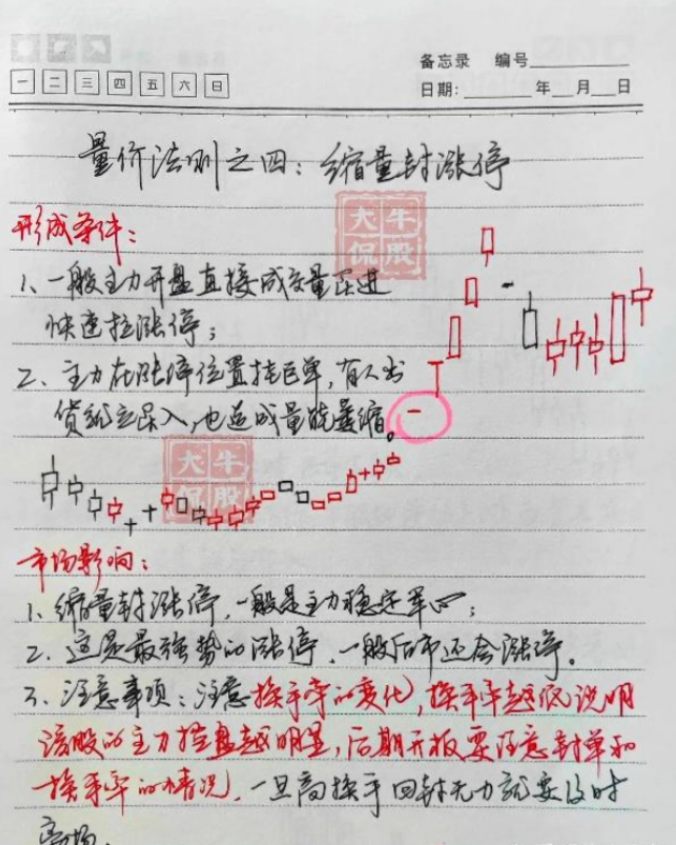 备忘录 编号
一 二 三 四 五 六 日
日期: 年 月 日
量价法则之四：缩量封涨停
大牛
侃股
形成条件：
1、一般主力开盘直接成交量买进
快速拉涨停；
2、主力在涨停位置挂巨单，有人出
货就立买入，也造成量能萎缩。
大牛
侃股
市场影响：
1、缩量封涨停，一般是主力稳定军心；
2、这是最强势的涨停，一般后市还会涨停。
3、注意事项：注意换手率的变化，换手率越低说明
该股的主力控盘越明显，后期开板要注意封单和
换手率的情况，一旦高换手回封无力就要及时
离场。